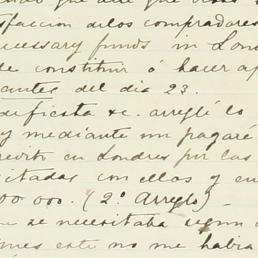 facción de los compradores
necessary funds in Lon
de constituir ó hacer ap
antes del dia 23.
difiesta &c. arreglé lo
y mediante un pagaré
redito en Londres por las
citadas con ellos y en
00 000. (2º Arreglo).
se necesitaba segun
mes este no me habia